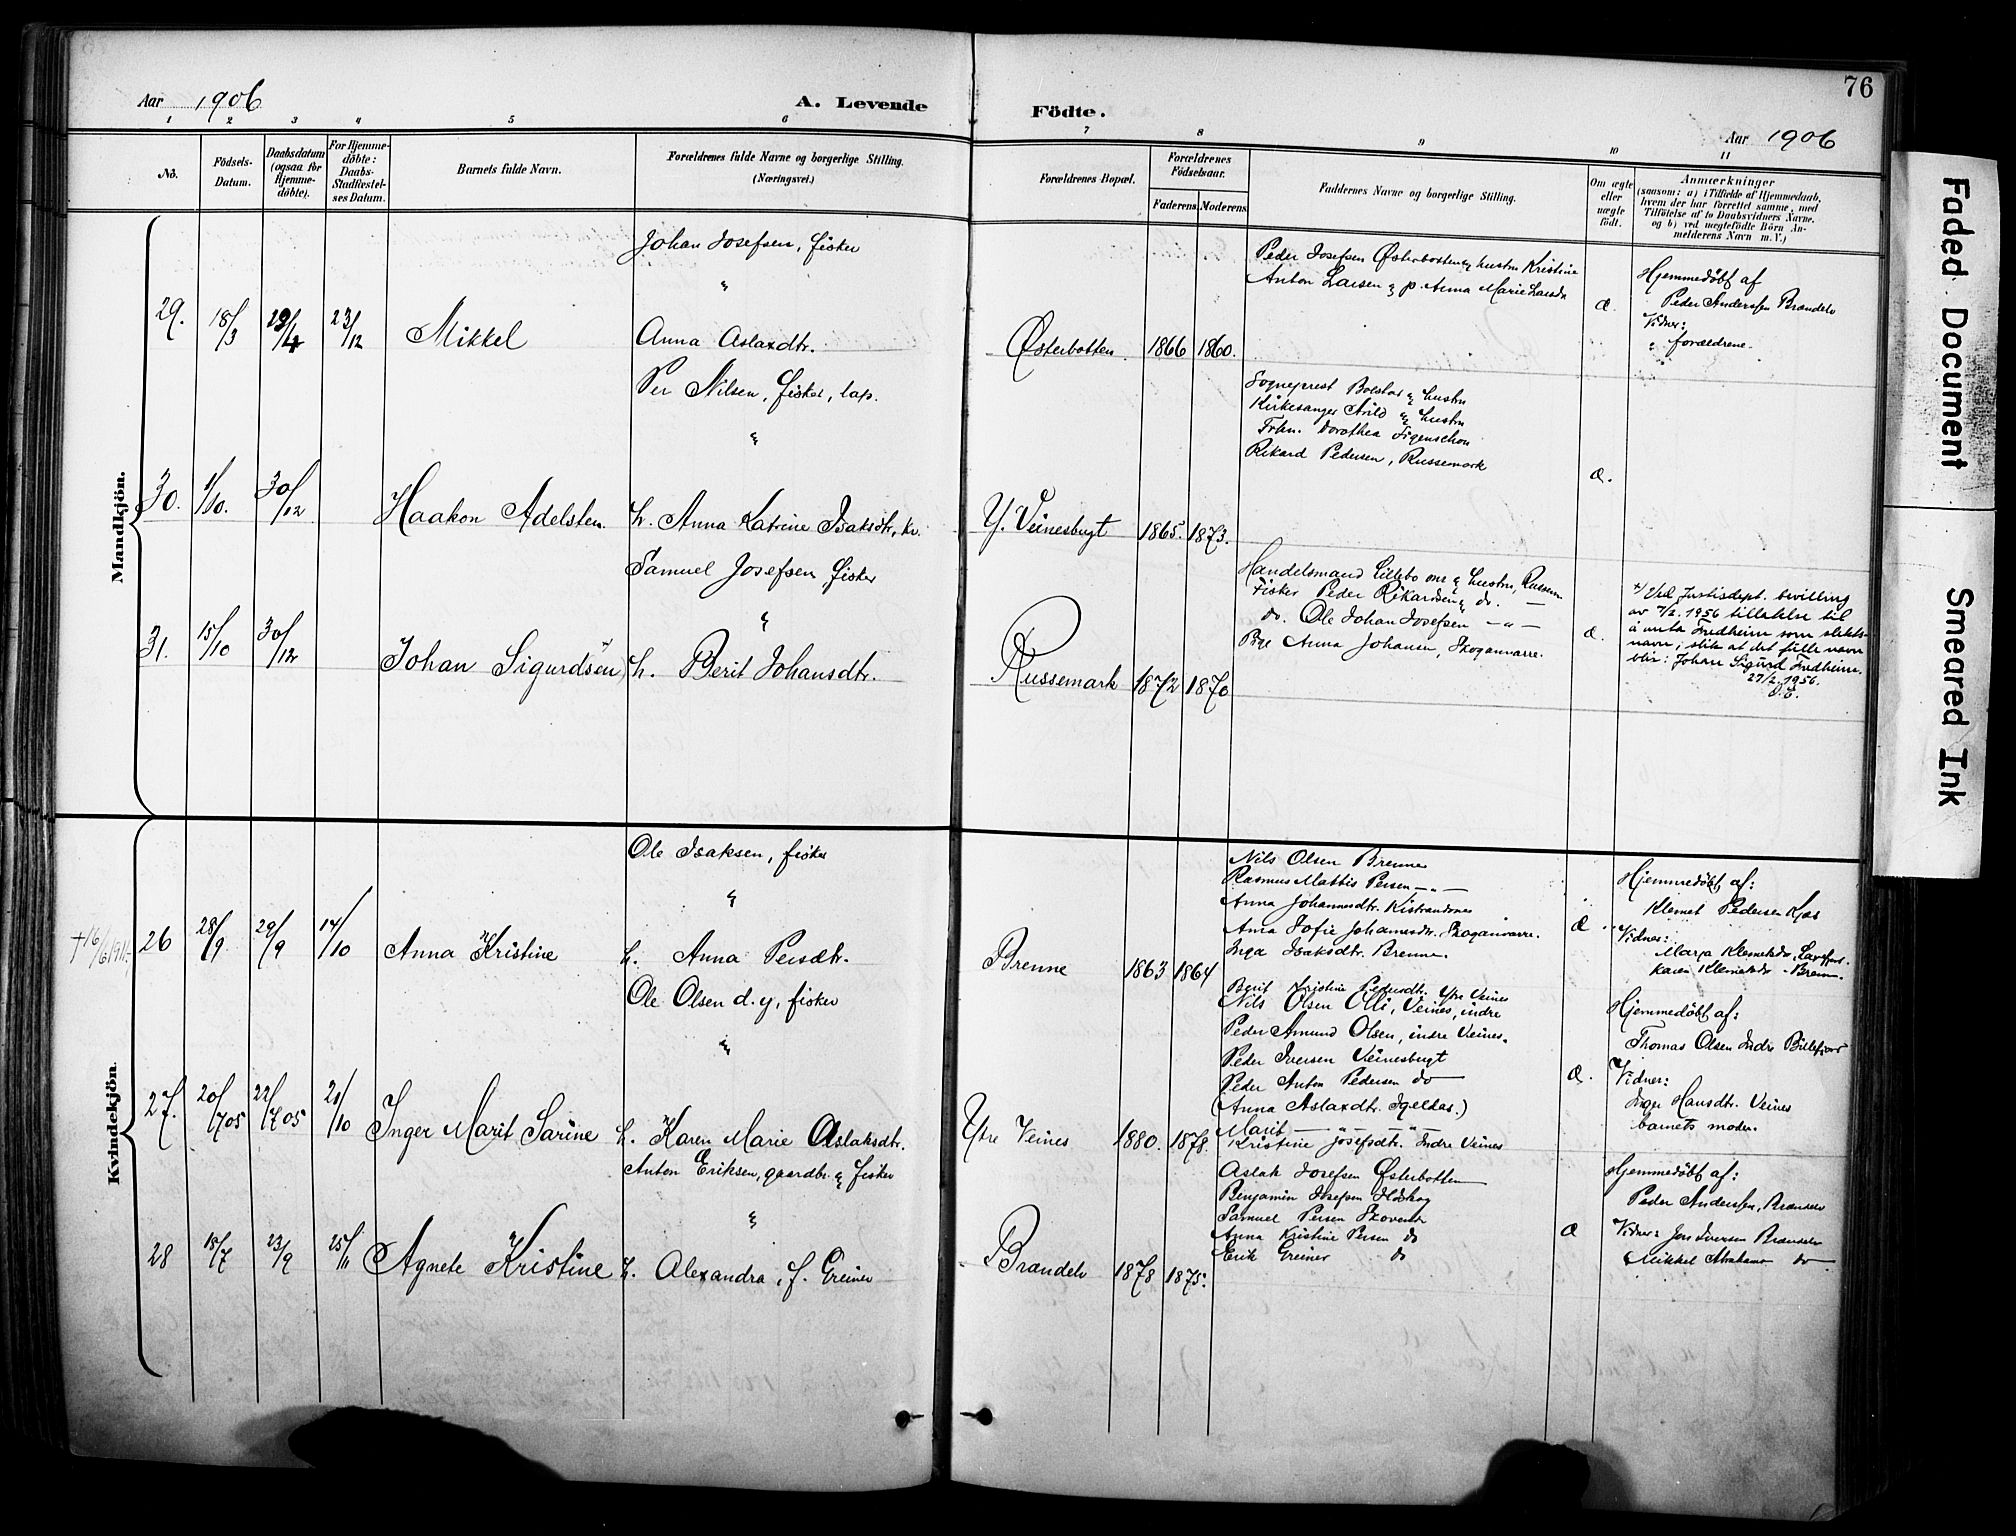 76
Aar 1906
A. Levende
Födte.
Aar 1906
1 2 3 4 5 6 7 8 9 10 11
No.
Födsels-
Datum.
Daabsdatum
(ogsaa for
Hjemme-
döbte).
For Hjemme-
döbte:
Daabs-
Stadfæstel-
ses Datum.
Barnets fulde Navn.
Forældrenes fulde Navne og borgerlige Stilling.
(Næringsvei.)
Forældrenes Bopæl.
Forældrenes
Födselsaar.
Faderens. Moderens.
Faddernes Navne og borgerlige Stilling.
Om ægte
eller
uægte
födt.
Anmærkninger
(saasom: a) i Tilfælde af Hjemmedaab,
hvem der har forrettet samme, med
Tilföielse af to Daabsvidners Navne.
og b) ved uægtefödte Börn An-
melderens Navn m. V.)
Mandkjön.
29. 18/3 29/4 23/12 Mikkel
Johan Josefsen, fisker
"
Anna Aslaxdtr.
Østerbotten. 1866 1860.
Peder Josefsen Østerbotten & hustru Kristine
Anton Larsen & p. Anna Marie Larsdr
Æ.
Hjemmedøbt af
Peder Anderssen Brændelv
Vidner:
forældrene.
30. 1/10. 30/12 Haakon Adelsten.
Per Nilsen, fisker, lap.
&
h. Anna Katrine Isaksdtr, kv.
Y. Veinesbugt 1865. 1873.
Sogneprest Bolstad & hustru
Kirkesanger Arild & hustru
Frkn. Dorothea Figenschou
Rikard Pedersen, Russemark
Æ.
31. 15/10 30/12 Johan Sigurdsen
Samuel Josefsen fisker
&
h. Berit Johansdtr.
Russemark 1872 1870
Handelsmand Lillebo & hustru, Russem
Fisker Peder Rikardsen & do. —
do. Ole Johan Josefsen — " —
Pige Anna Johansen, Skoganvarre.
Æ.
+) Ved Justisdept. bevilling
av 7/2. 1956 tillatelse til
å anta Fredheim som slekts-
navn, slik at det fulle navn
blir: Johan Sigurd Fredheim.
27/2.1956.
Kvindekjön.
+16/6 1911.
26 28/9 29/9 14/10 Anna Kristine
Ole Isaksen, fisker
&
h. Anna Persdtr.
Brenne 1863 1864
Nils Olsen Brenne
Rasmus Mathis Persen — " —
Anna Johannesdtr. Kistrandnes
Anna Sofie Johannesdtr. Skoganvarre.
Inga Isaksdtr. Brenne.
Berit Kristine Pedersdtr. Ytre Veines
Æ.
Hjemmedøbt af:
Klemet Pedersen Kjæs
Vidner:
Marja Klemetsdr,
Karen Klemetsdr - Brenn.
27. 20/7 05 22/7 05 21/10 Inger Marit Sarine
Ole Olsen d.y, fisker
&
h. Karen Marie Aslaksdtr.
Ytre Veines 1880. 1878.
Nils Olsen Olli, Veines, indre
Peder Amund Olsen, indre Veines.
Peder Iversen Veinesbugt
Peder Anton Pedersen do
(Anna Aslaxdtr. Igeldas.)
Marit — " —
Kristine Josefsdtr. Indre Veines
Æ.
Hjemmedøbt af:
Thomas Olsen Indre Billefjord
Vidner:
Inger Hansdtr. Veines
barnets moder.
28 18/7 23/9 25/11 Agnete Kristine
Anton Eriksen, gaardbr. & fisker
&
h. Alexandra, f. Greiner
Brændelv 1878 1875.
Aslak Josefsen Østerbotten
Benjamin Josefsen
Samuel Persen
Anna Kristine Persen do
Erik Greiner do
Æ
Hjemmedøbt af:
Peder Anderssen, Brændelv
Vidner: Jon Iversen Brændelv
Mikkel Abrahams do
Faded Document
Smeared Ink